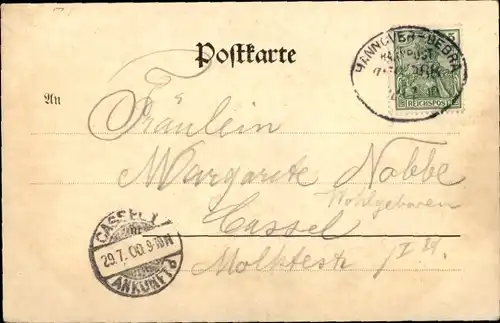 Postkarte
HANNOVER-BEBRA
BAHNPOST
5
REICHSPOST
An
Fräulein
Margarete Nobbe
Wohlgeboren
Cassel
Molkestr
CASSEL 1
29.7.00.9-10 N
ANKUNFT